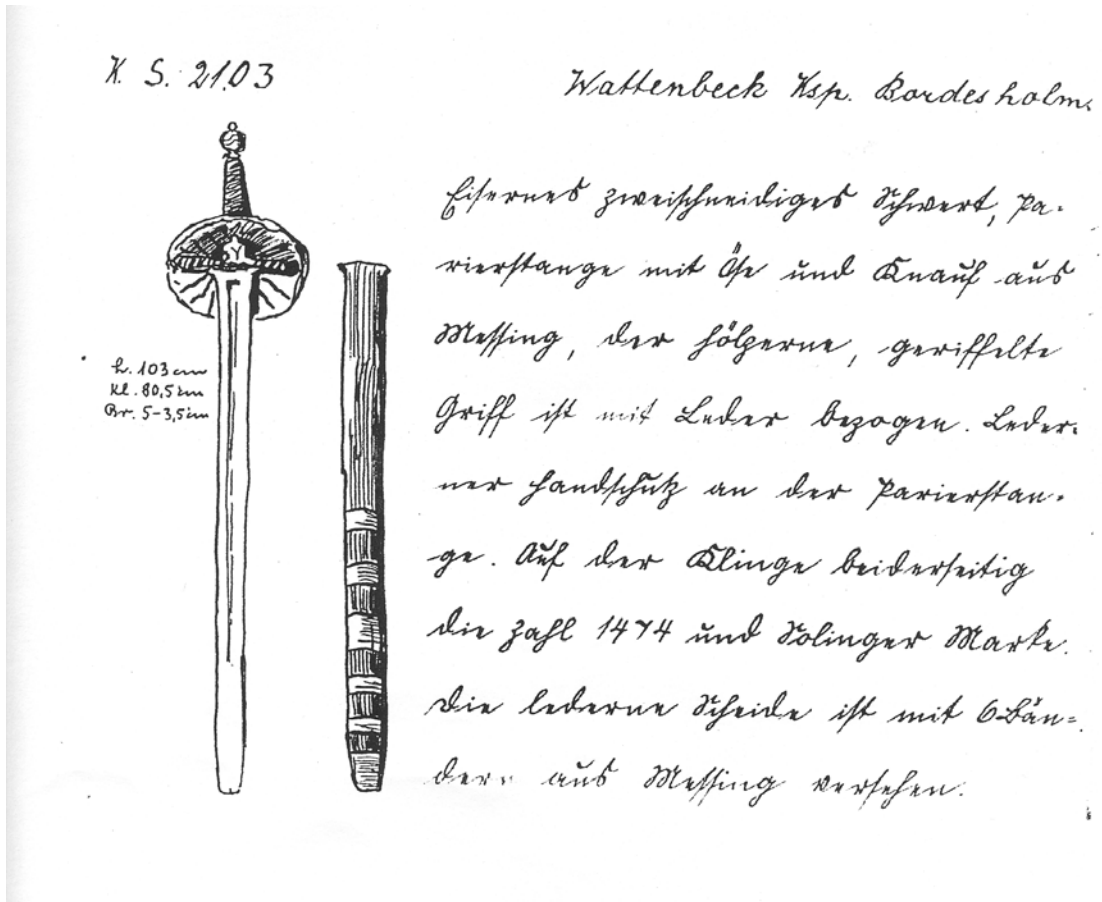 K. S. 2103
Wattenbeck Ksp. Bordesholm.
Eisernes zweischneidiges Schwert, Pa-
rierstange mit Öse und Knauf aus
Messing, der hölzerne, geriffelte
Griff ist mit Leder bezogen. Leder-
ner Handschutz an der Parierstan-
ge. Auf der Klinge beiderseitig
die Zahl 1474 und Solinger Marke.
Die lederne Scheide ist mit 6 Bän=
dern aus Messing versehen.
L. 103 cm
Kl. 80,5 cm
Br. 5-3,5 cm